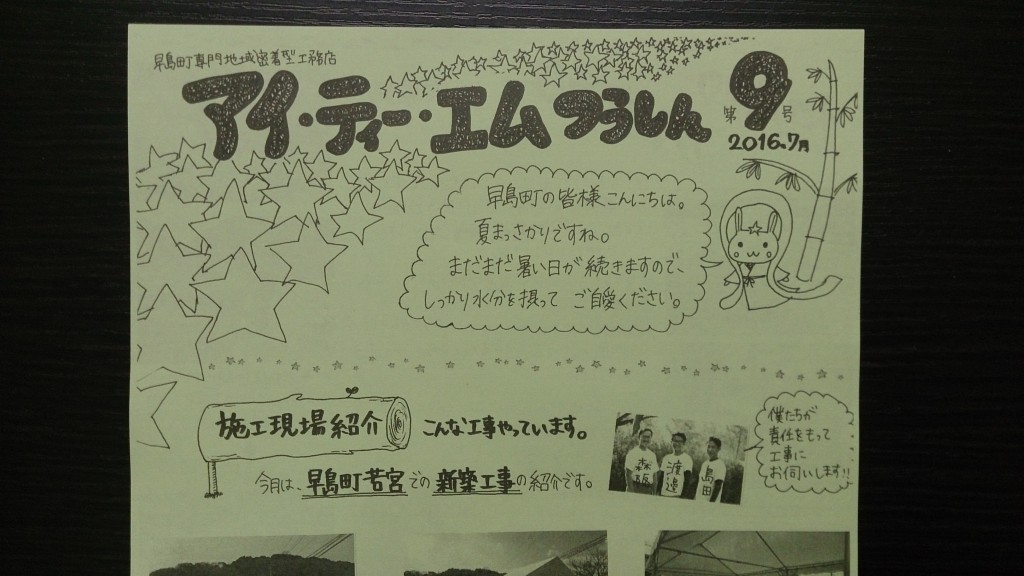 早島町専門地域密着型工務店
アイ・ティー・エムつうしん
第9号
2016.7月
早島町の皆様こんにちは。
夏まっさかりですね。
まだまだ暑い日が続きますので、
しっかり水分を摂って ご自愛ください。
施工現場紹介
こんな工事やっています。
今月は、早島町若宮での新築工事の紹介です。
渡邉
島田
僕たちが
責任をもって
工事に
お伺いします!!